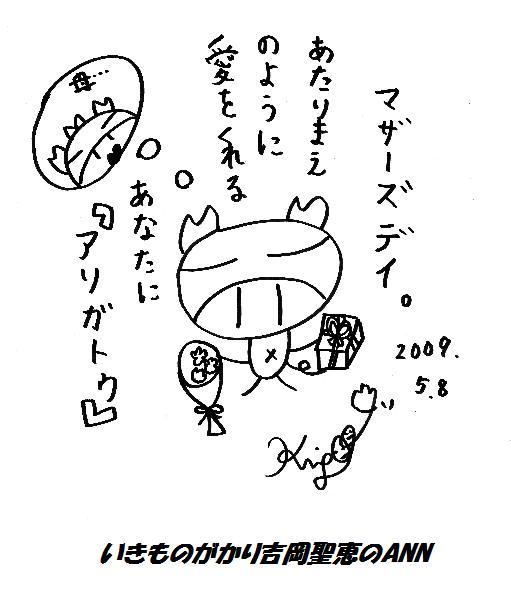 マザーズデイ。
あたりまえ
のように
愛をくれる
あなたに
『アリガトウ』
母…
2009.
5.8
いきものがかり吉岡聖恵のANN